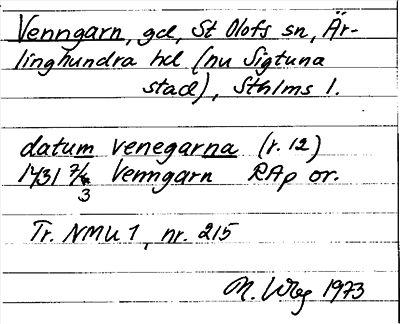 Venngarn, gd, St Olofs sn, Är-
linghundra hd (nu Sigtuna
stad), Sthlms l.
datum venegarna (r. 12)
1431 7/4 Venngarn RAp or.
3
Tr. NMU 1, nr. 215
N. Wbg 1973